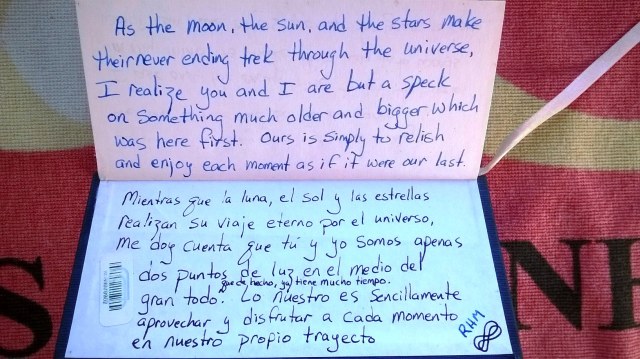 As the moon, the sun, and the stars make
their never ending trek through the universe,
I realize you and I are but a speck
on something much older and bigger which
was here first. Ours is simply to relish
and enjoy each moment as if it were our last.
Mientras que la luna, el sol y las estrellas
realizan su viaje eterno por el universo,
me doy cuenta que tú y yo somos apenas
dos puntos de luz en el medio del
que de hecho, ya tiene mucho tiempo.
gran todo. Lo nuestro es sencillamente
aprovechar y disfrutar a cada momento
en nuestro propio trayecto
RHM
S
NH